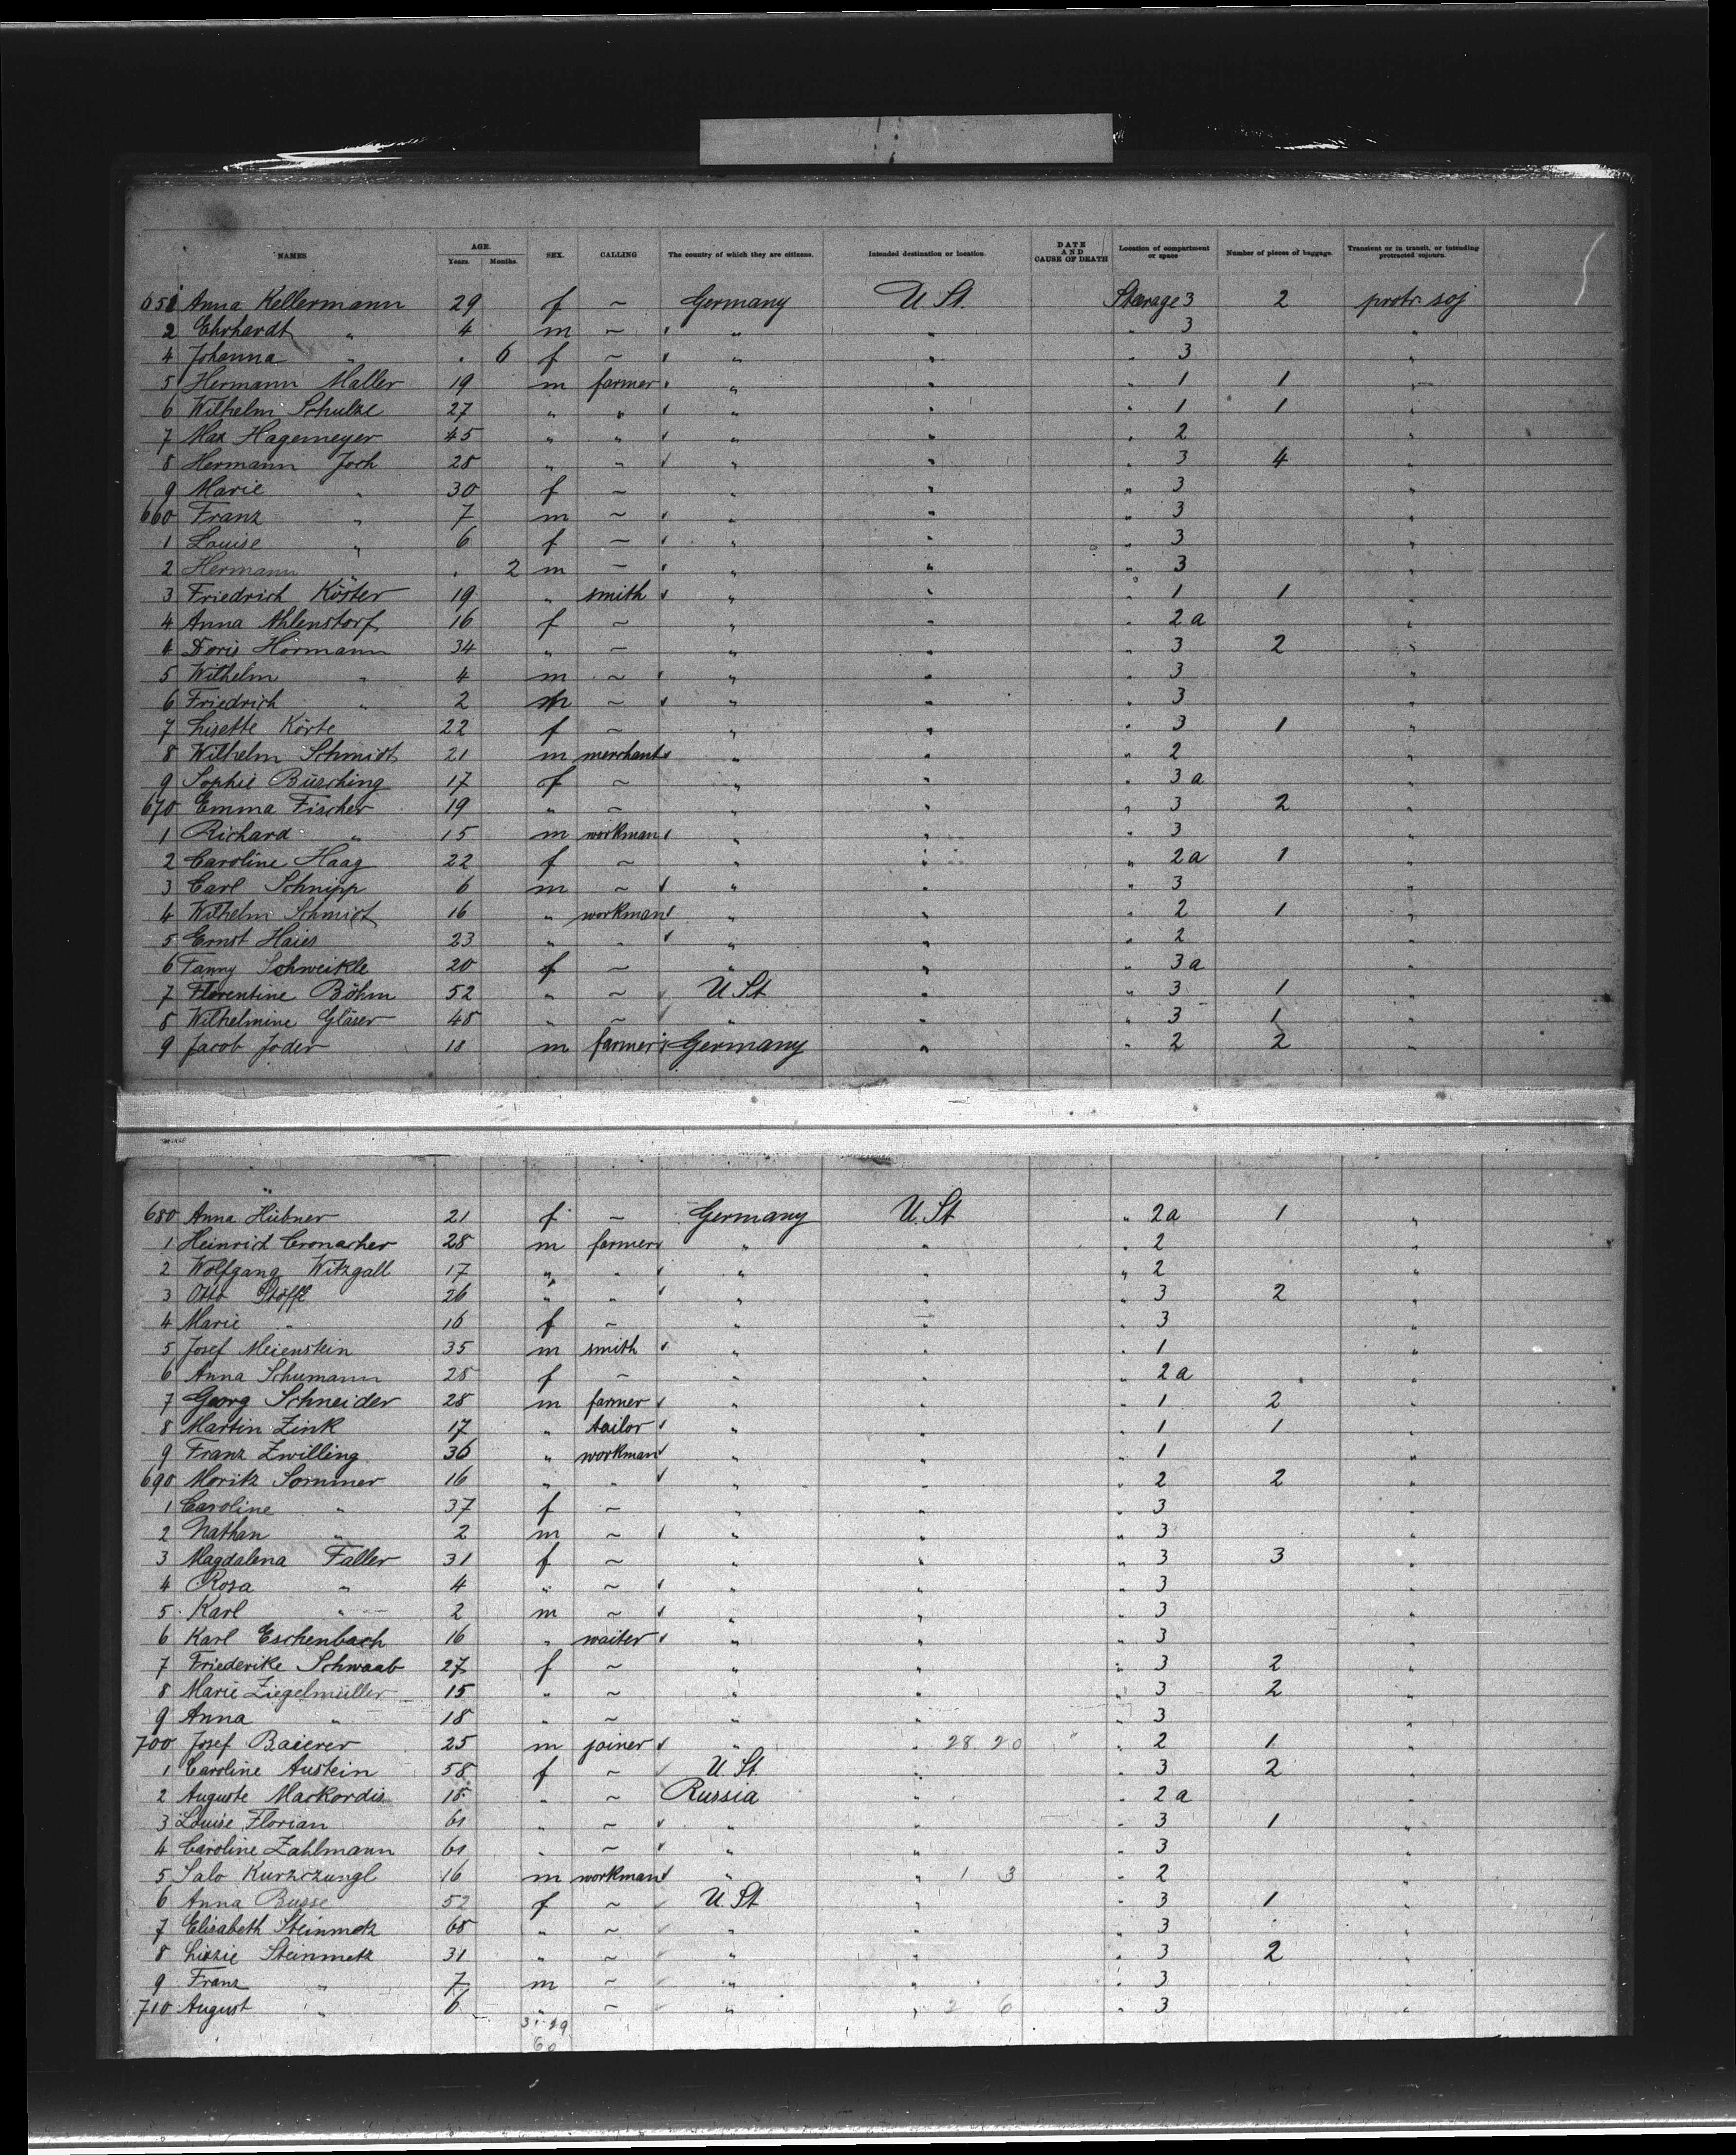 NAMES AGE. Years. Months. SEX. CALLING The country of which they are citizens. Intended destination or location. DATE AND CAUSE OF DEATH Location of compartment or space Number of pieces of baggage. Transient or in transit, or intending protracted sojourn.
Anna Kellermann 29 f ~ Germany U St. Steerage 3 2 protr. soj
2 Ehrhardt " 4 m ~ " " " 3 "
4 Johanna " . 6 f ~ " " " 3 "
5 Hermann Maller 19 m farmer " " " 1 1 "
6 Wilhelm Schulze 27 " " " " " 1 1 "
7 Max Hagemeyer 45 " " " " " 2 "
8 Hermann Joch 28 " " " " " 3 4 "
9 Marie " 30 f ~ " " " 3 "
660 Franz " 7 m ~ " " " 3 "
1 Louise " 6 f ~ " " " 3 "
2 Hermann . 2 m ~ " " " 3 "
3 Friedrich Köster 19 " smith " " " 1 1 "
4 Anna Ahlenstorf 16 f ~ " " " 2a "
4 Doris Hormann 34 " ~ " " " 3 2 "
5 Wilhelm " 4 m ~ " " " 3 "
6 Friedrich " 2 m ~ " " " 3 "
7 Lisette Körte 22 f ~ " " " 3 1 "
8 Wilhelm Schmidt 21 m merchant " " " 2 "
9 Sophie Büsching 17 f ~ " " " 3a "
670 Emma Fischer 19 " ~ " " " 3 2 "
1 Richard " 15 m workman " " " 3 "
2 Caroline Haag 22 f ~ " " " 2a 1 "
3 Carl Schnipp 6 m ~ " " " 3 "
4 Wilhelm Schmidt 16 " workman " " " 2 1 "
5 Ernst Haies 23 " " " " " 2 "
6 Fanny Schweikle 20 f ~ " " " 3a "
7 Florentine Böhm 52 " ~ U St " " 3 1 "
8 Wilhelmine Gläser 48 " ~ " " " 3 1 "
9 Jacob Joder 18 m farmer Germany " " 2 2 "
680 Anna Hübner 21 f ~ Germany U. St " 2a 1 "
1 Heinrich Cronacher 28 m farmer " " " 2 "
2 Wolfgang Witzgall 17 " " " " " 2 "
3 Otto Stöffl 26 " " " " " 3 2 "
4 Marie " 16 f ~ " " " 3 "
5 Josef Meienstein 35 m smith " " " 1 "
6 Anna Schumann 28 f ~ " " " 2a "
7 Georg Schneider 28 m farmer " " " 1 2 "
8 Martin Zink 17 " tailor " " " 1 1 "
9 Franz Zwilling 36 " workman " " " 1 "
690 Moritz Sommer 16 " " " " " 2 2 "
1 Caroline " 37 f ~ " " " 3 "
2 Nathan " 2 m ~ " " " 3 "
3 Magdalena Faller 31 f ~ " " " 3 3 "
4 Rosa " 4 " ~ " " " 3 "
5 Karl " 2 m ~ " " " 3 "
6 Karl Eschenbach 16 " waiter " " " 3 "
7 Friederike Schwaab 27 f ~ " " " 3 2 "
8 Marie Ziegelmüller 15 " ~ " " " 3 2 "
9 Anna " 18 " ~ " " " 3 "
700 Josef Baierer 25 m joiner " " 28 20 " 2 1 "
1 Caroline Austein 58 f ~ U. St. " " 3 2 "
2 Auguste Markordis 18 " ~ Russia " " 2a "
3 Louise Florian 61 " ~ " " " 3 1 "
4 Caroline Zahlmann 61 " ~ " " " 3 "
5 Salo Kurzczungl 16 m workman " " 1 3 " 2 "
6 Anna Busse 52 f ~ U. St " " 3 1 "
7 Elisabeth Steinmetz 68 " ~ " " " 3 "
8 Lizzie Steinmetz 31 " ~ " " " 3 2 "
9 Franz " 7 m ~ " " " 3 "
710 August " 6 " ~ " " 2 6 " 3 "
31 29
60